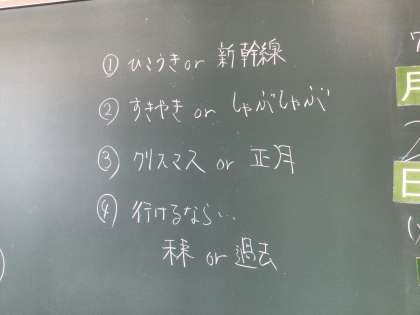 ① ひこうき or 新幹線
② すきやき or しゃぶしゃぶ
③ クリスマス or 正月
④ 行けるなら...
未来 or 過去
月
日